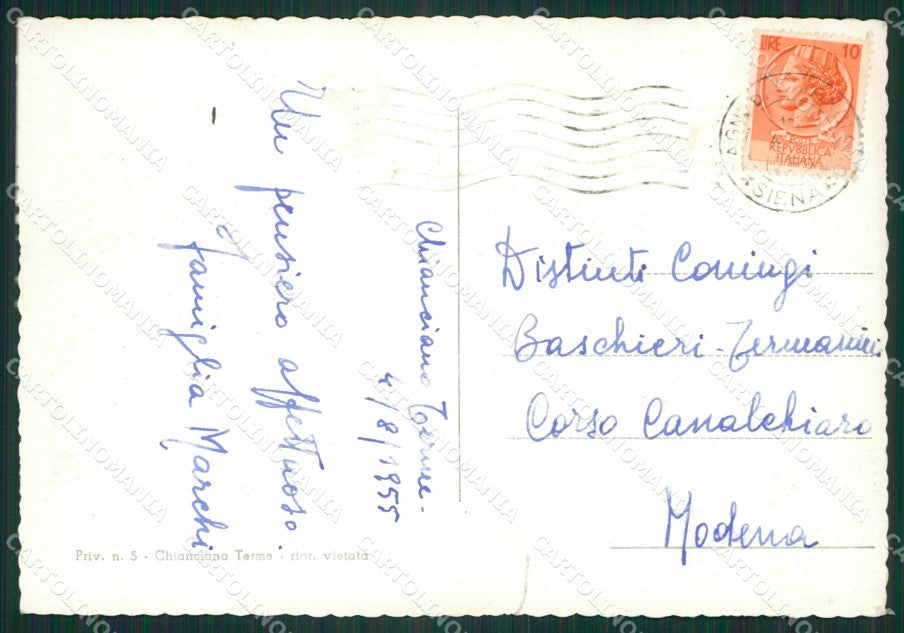 Chianciano Terme.
4/8/1955
Un pensiero affettuoso.
famiglia Marchi
Distinti Coniugi
Baschieri-Termanini
Corso Canalchiaro
Modena
LIRE 10
POSTE
REPVBBLICA
ITALIANA
SIENA
Priv. n. 5 - Chianciano Terme - ripr. vietata
CARTOLINOMANIA